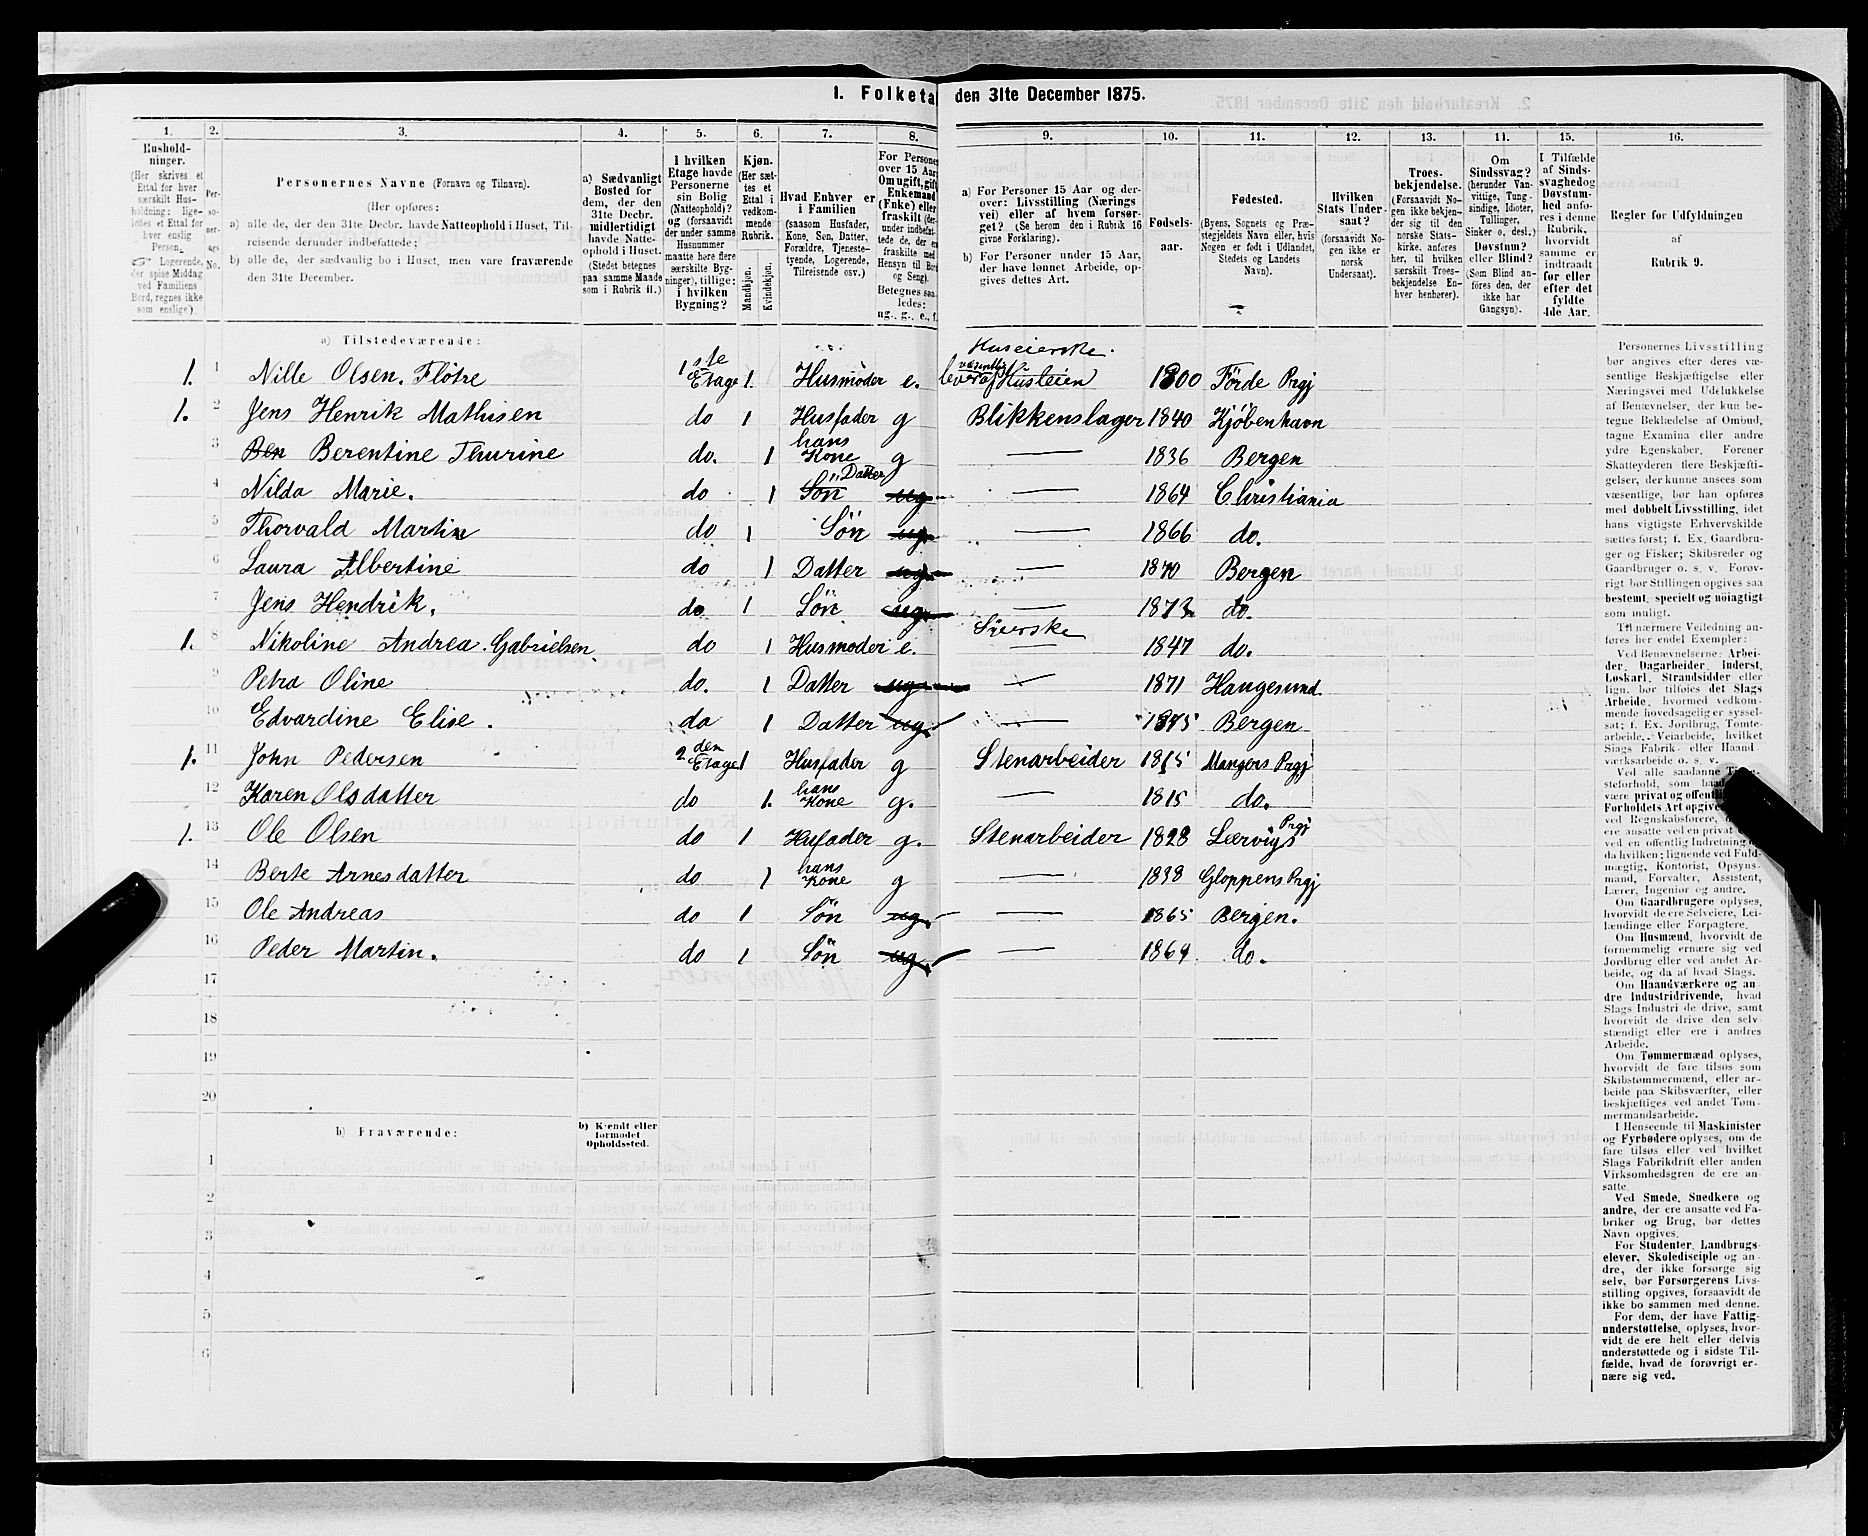 1. Folketa den 31te December 1875.
1. 2. 3. 4. 5. 6. 7. 8. 9. 10. 11. 12. 13. 11. 15. 16.
Hushold-
ninger.
(Her skrives et
Ettal for hver
særskilt Hus-
holdning; lige-
ledes et Ettal for
hver enslig
Person.
Logerende,
der spise Middag
ved Familiens
Bord, regnes ikke
som enslige).
Per-
so-
ner-
nes
No.
Personernes Navne (Fornavn og Tilnavn).
(Her opføres:
a) alle de, der den 31te Decbr. havde Natteophold i Huset, Til-
reisende derunder indbefattede;
b) alle de, der sædvanlig bo i Huset, men vare fraværende
den 31te December.
a) Sædvanligt
Bosted for
dem, der den
31te Decbr.
midlertidigt
havde Natte-
ophold i Huset.
(Stedet betegnes
paa samme Maade
som i Rubrik 11.)
I hvilken
Etage havde
Personerne
sin Bolig
(Natteophold)?
og (forsaavidt
der under samme
Husnummer
maatte høre flere
særskilte Byg-
ninger), tillige:
i hvilken
Bygning?
Kjøn.
(Her sæt-
tes et
Ettal i
vedkom-
mende
Rubrik.
Mandkjøn.
Kvindekjøn.
Hvad Enhver er
i Familien
(saasom Husfader,
Kone, Søn, Datter,
Forældre, Tjeneste-
tyende, Logerende,
Tilreisende osv.)
For Persone
over 15 Aar
Om ugift, gift
Enkemand
(Enke) eller
fraskilt (der-
under indbefat-
tede de, der er
fraskilte med
Hensyn til Bord
og Seng).
Betegnes saa-
ledes:
ug., g., e., f.
a) For Personer 15 Aar og der-
over: Livsstilling (Nærings
vei) eller af hvem forsør-
get? (Se herom den i Rubrik 16
givne Forklaring).
b) For Personer under 15 Aar,
der have lønnet Arbeide, op-
gives dettes Art.
Fødsels-
aar.
Fødested.
(Byens, Sognets og Præ-
stegjeldets Navn eller, hvis
Nogen er født i Udlandet,
Stedets og Landets
Navn).
Hvilken
Stats Under-
saat?
(forsaavidt No-
gen ikke er
norsk
Undersaat).
Troes-
bekjendelse.
(Forsaavidt No-
gen ikke bekjen-
der sig til den
norske Stats-
kirke, anføres
her, til hvilken
særskilt Troes-
bekjendelse En-
hver henhører).
Om
Sindssvag?
(herunder Van-
vittige, Tung-
sindige, Idioter,
Tullinger,
Sinker o. desl.)
Døvstum?
eller Blind?
(Som Blind an-
føres den, der
ikke har
Gangsyn).
I Tilfælde
af Sinds-
svaghed og
Døvstum-
hed anfø-
res i denne
Rubrik,
hvorvidt
samme er
indtraadt
før eller
efter det
fyldte
4de Aar.
Regler for Udfyldningen
af
Rubrik 9.
a) Tilstedeværende:
Huseierske.
1. 1 Nille Olsen. Fløtre 1ste Etage 1. Husmoder e. leveraf væsentlig Husleien 1800 Förde Prgj
1. 2 Jens Henrik Mathisen do 1 Husfader g Blikkenslager 1840 Kjöbenhavn
3 Ben Berentine Thurine do. 1 hans Kone g — 1836 Bergen
4 Nilda Marie. do 1 Sön Datter ug — 1864 Christiania
5 Thorvald Martin do 1 Sön ug — 1866 do.
6 Laura Albertine do 1 Datter ug — 1870 Bergen
7 Jens Hendrik. do 1 Sön ug — 1873 do.
1. 8 Nikoline Andrea Gabrielsen do 1 Husmoder e. Sierske — 1847 do.
9 Petra Oline do. 1 Datter ug — 1871 Haugesund
10 Edvardine Elise. do 1 Datter ug — 1875 Bergen
1. 11 John Pedersen 2den Etage 1 Husfader g Stenarbeider 1815 Mangers Prgj
12 Karen Olsdatter do 1. hans Kone g. — 1815 do.
1. 13 Ole Olsen do 1 Husfader g. Stenarbeider 1828 Lærvigs Prgj
14 Berte Arnesdatter do 1 hans Kone g — 1838 Gloppens Prgj
15 Ole Andreas do 1 Sön ug — 1865 Bergen.
16 Peder Martin. do 1 Sön ug — 1869 do.
17
18
19
20
b) Fraværende: b) Kjendt eller
formodet
Opholdssted.
1
2
3
4
5
6
Personernes Livsstilling
bør angives efter deres væ-
sentlige Beskjæftigelse eller
Næringsvei med Udelukkelse
af Benævnelser, der kun be-
tegne Beklædelse af Ombud,
tagne Examina eller andre
ydre Egenskaber. Forener
Skatteyderen flere Beskjæfti-
gelser, der kunne ansees som
væsentlige, bør han opføres
med dobbelt Livsstilling, idet
hans vigtigste Erhvervskilde
sættes først; f. Ex. Gaardbru-
ger og Fisker; Skibsreder og
Gaardbruger o. s. v. Forøv-
rigt bør Stillingen opgives saa
bestemt, specielt og nöiagtigt
som muligt.
Til nærmere Veiledning an-
føres her endel Exempler:
Ved Benævnelserne: Arbei-
der, Dagarbeider, Inderst,
Løskarl, Strandsidder eller
lign. bør tilføies det Slags
Arbeide, hvormed vedkom-
mende hovedsagelig er syssel-
sat; f. Ex. Jordbrug, Tomte-
arbeide, Veiarbeide, hvilket
Slags Fabrik- eller Haand
værksarbeide o. s. v.
Ved alle saadanne
steforhold, som baa
være privat og offent
Forholdets Art opgive
ved Regnskabsførere,
ere ansatte ved en privat
ved en offentlig Indretning
da hvilken; lignende ved Fuld-
mægtig, Kontorist, Opsyns-
mand, Forvalter, Assistent,
Lærer, Ingeniør og andre.
Om Gaardbrugere oplyses,
hvorvidt de ere Selveiere, Lei-
lændinge eller Forpagtere.
Om Husmænd, hvorvidt de
fornemmelig ernære sig ved
Jordbrug eller ved andet Ar-
beide, og da af hvad Slags.
Om Haandværkere og an-
dre Industridrivende, hvad
Slags Industri de drive, samt
hvorvidt de drive den selv-
stændigt eller ere i andres
Arbeide.
Om Tømmermænd oplyses,
hvorvidt de fare tilsøs som
Skibstømmermænd, eller ar-
beide paa Skibsværfter, eller
beskjæftiges ved andet Tøm-
mermandsarbeide.
I Henseende til Maskinister
og Fyrbødere oplyses, om de
fare tilsøs eller ved hvilket
Slags Fabrikdrift eller anden
Virksomhedsgren de ere an-
satte.
Ved Smede, Snedkere og
andre, der ere ansatte ved Fa-
briker og Brug, bør dettes
Navn opgives.
For Studenter, Landbrugs-
elever, Skoledisciple og an-
dre, der ikke forsørge sig
selv, bør Forsørgerens Livs-
stilling opgives, forsaavidt de
ikke bo sammen med denne.
For dem, der have Fattig-
understøttelse, oplyses, hvor-
vidt de ere helt eller delvis
understøttede og i sidste Til-
fælde, hvad de forøvrigt er-
nære sig ved.